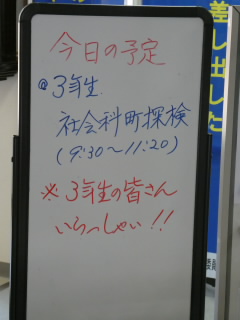 今日の予定
@ 3年生
社会科町探検
(9:30～11:20)
※ 3年生の皆さん
いらっしゃい!!
差し出した